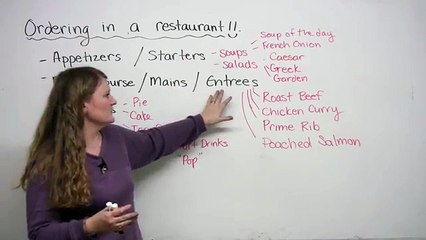 Ordering in a restaurant!!
- Appetizers / Starters
- Soups
- Salads
Soup of the day
French Onion
Caesar
Greek
Garden
/ Mains / Entrees
- Pie
- Cake
Drinks
"Pop"
Roast Beef
Chicken Curry
Prime Rib
Poached Salmon